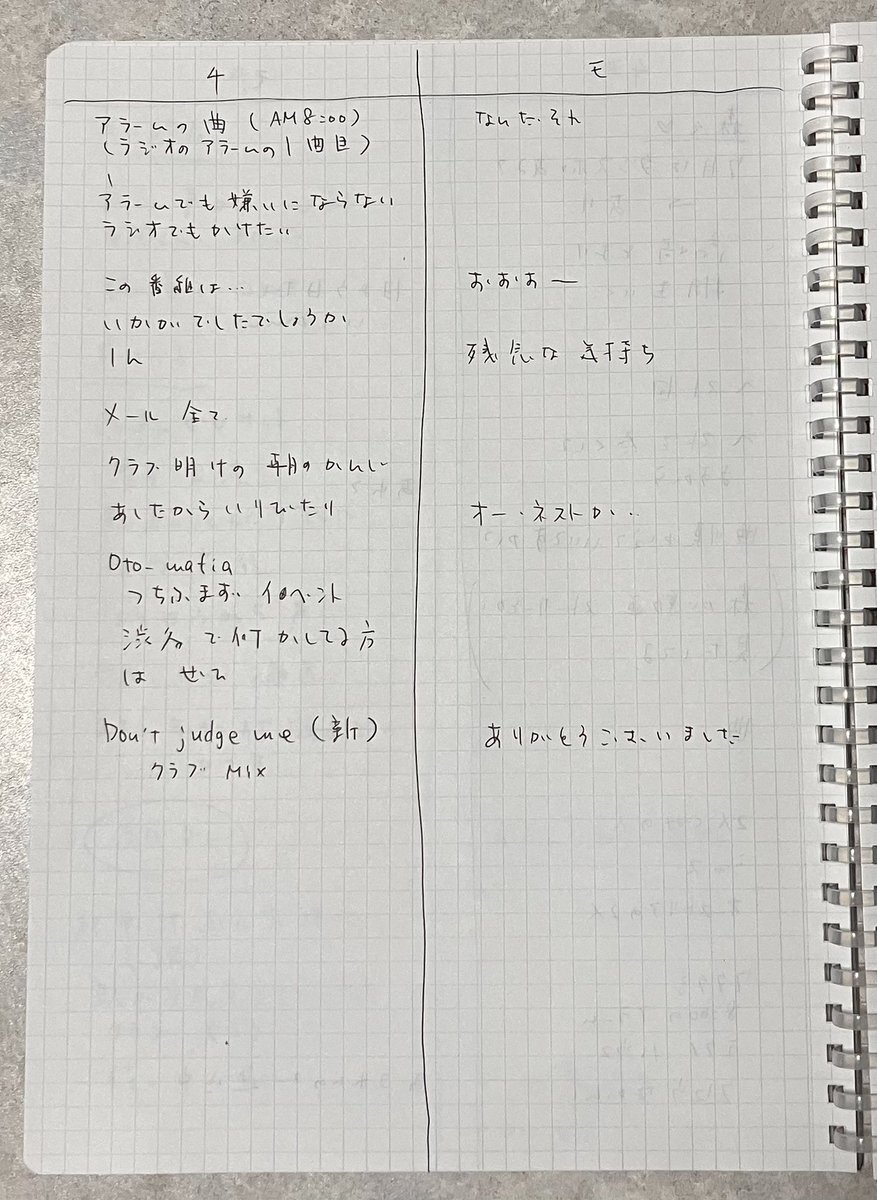 4
モ
アラームの曲 (AM8:00)
(ラジオのアラームの1曲目)
アラームでも嫌いにならない
ラジオでもかけたい
なんだそれ
この番組は…
おおおー
いかがでしたでしょうか
残念な気持ち
メール 全て
クラブ明けの 朝のかんじ
あしたから いりびたり
オー・ネストか..
Oto-mafia
つちふまず イベント
渋谷で何かしてる方
は ぜひ
Don't judge me (新)
ありがとうございました
クラブ MIX